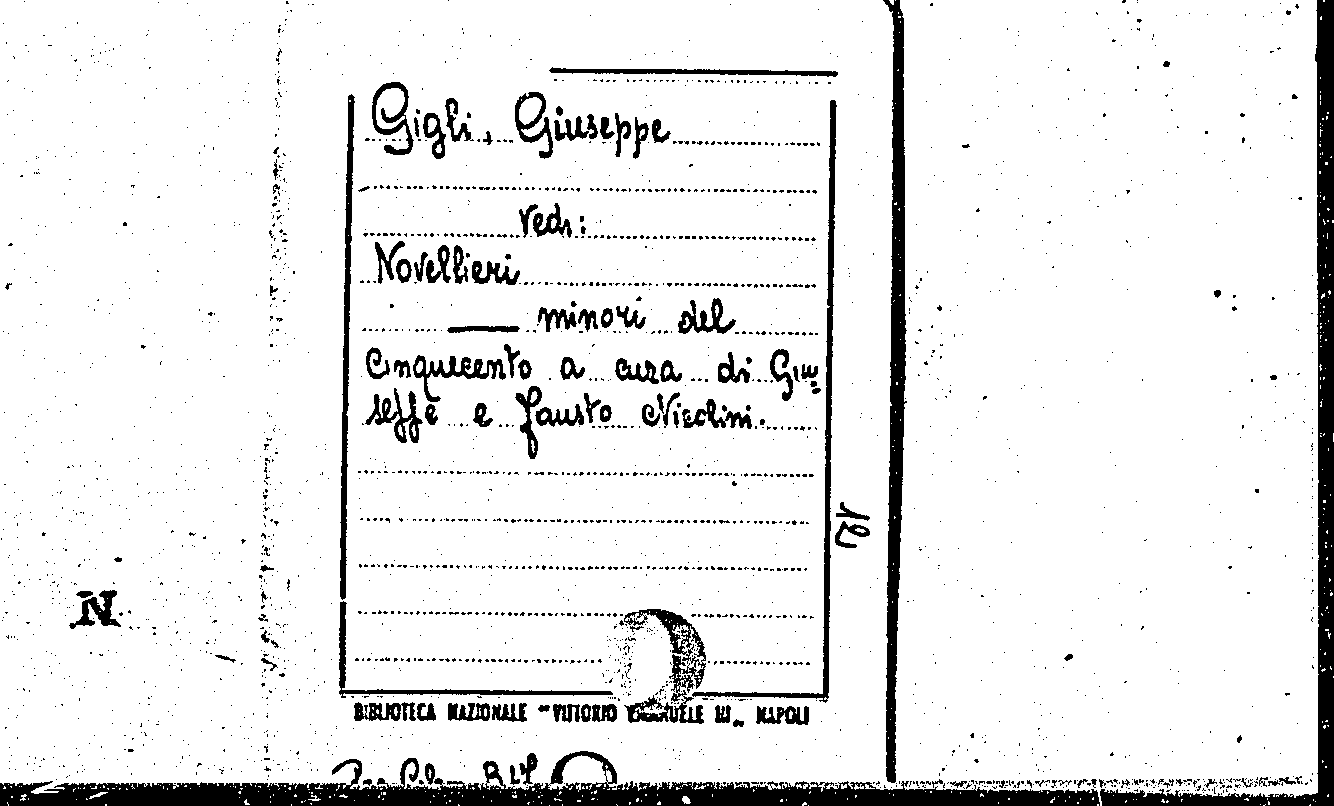 Gigli, Giuseppe
vedi:
Novellieri
—— minori del
Cinquecento a cura di Giu=
seppe e Fausto Nicolini.
BIBLIOTECA NAZIONALE "VITTORIO EMANUELE III„ NAPOLI
N